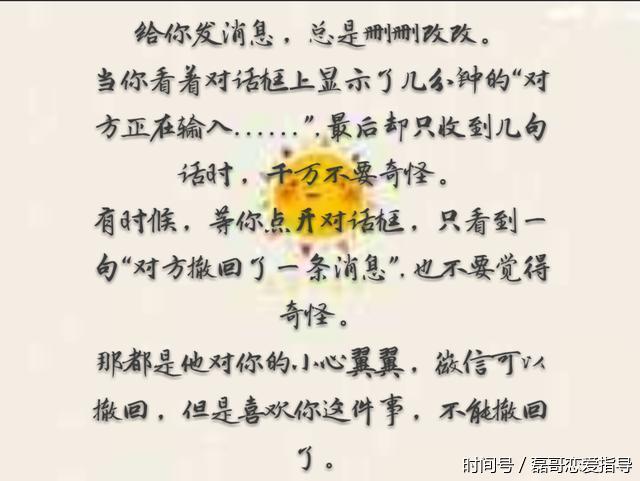 给你发消息，总是删删改改。
当你看着对话框上显示了几分钟的“对
方正在输入……”，最后却只收到几句
话时，千万不要奇怪。
有时候，等你点开对话框，只看到一
句“对方撤回了一条消息”，也不要觉得
奇怪。
那都是他对你的小心翼翼，微信可以
撤回，但是喜欢你这件事，不能撤回
了。
时间号／磊哥恋爱指导